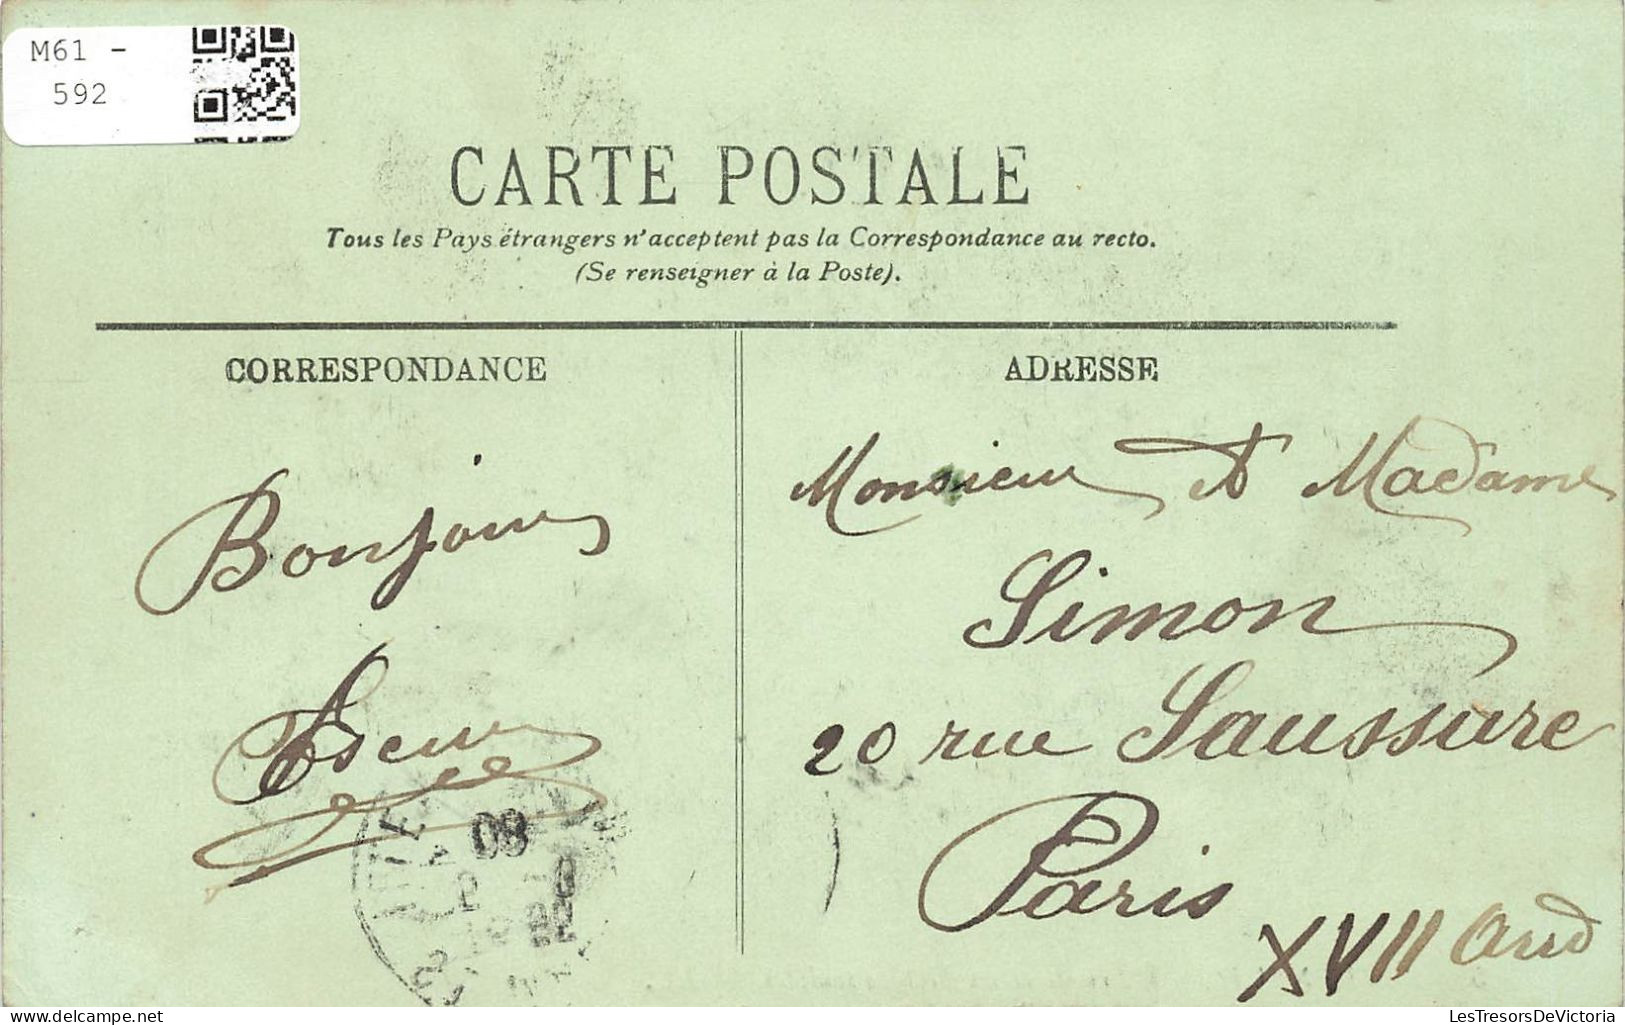 M61 -
592
CARTE POSTALE
Tous les Pays étrangers n'acceptent pas la Correspondance au recto.
(Se renseigner à la Poste).
CORRESPONDANCE
Bonjour
08
ADRESSE
Monsieur et Madame
Simon
20 rue Saussure
Paris
XVII Arrd
delcampe.net
LesTresorsDeVictoria